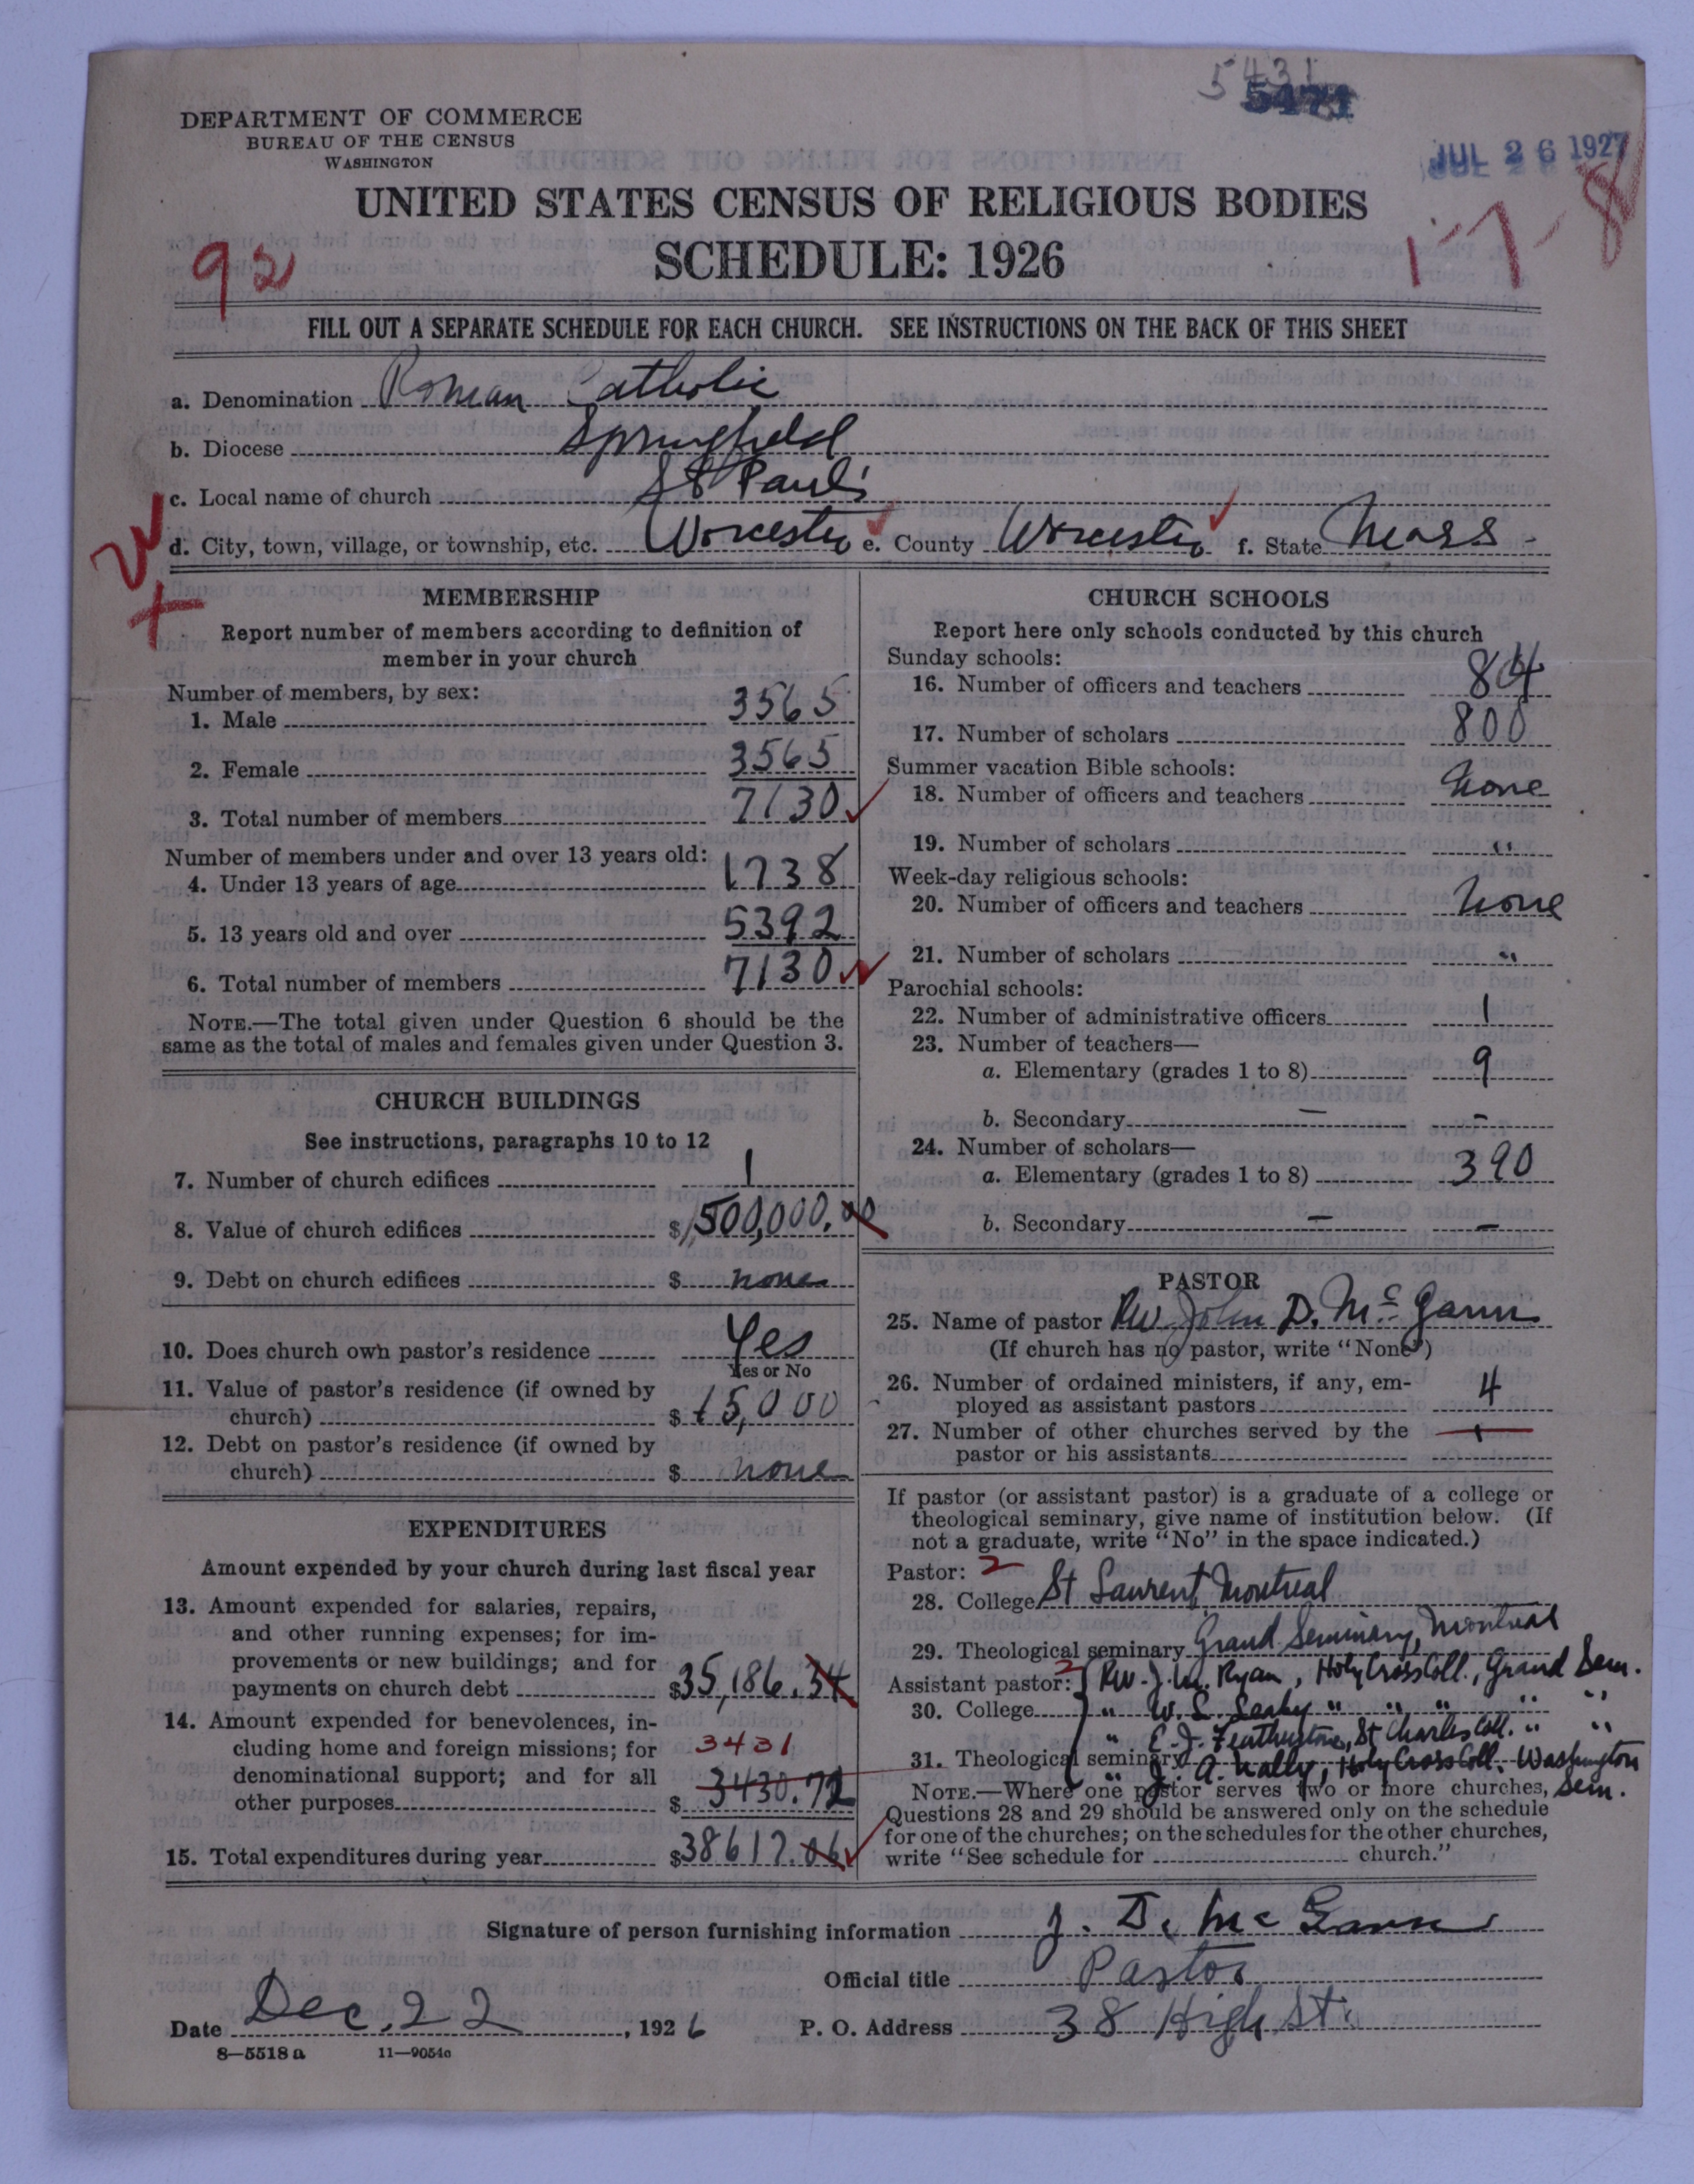 5431
5471
DEPARTMENT OF COMMERCE
BUREAU OF THE CENSUS
WASHINGTON
JUL 26 1927
UNITED STATES CENSUS OF RELIGIOUS BODIES
SCHEDULE: 1926
92
1-7-8
FILL OUT A SEPARATE SCHEDULE FOR EACH CHURCH. SEE INSTRUCTIONS ON THE BACK OF THIS SHEET
a. Denomination Roman Catholic
b. Diocese Springfield
c. Local name of church St Paul's
d. City, town, village, or township, etc. Worcester e. County Worcester f. State Mass.
MEMBERSHIP
Report number of members according to definition of
member in your church
Number of members, by sex:
1. Male 3565
2. Female 3565
3. Total number of members 7130
Number of members under and over 13 years old:
4. Under 13 years of age 1738
5. 13 years old and over 5392
6. Total number of members 7130
NOTE.—The total given under Question 6 should be the
same as the total of males and females given under Question 3.
CHURCH BUILDINGS
See instructions, paragraphs 10 to 12
7. Number of church edifices 1
8. Value of church edifices $1,500,000.00
9. Debt on church edifices $ none
10. Does church own pastor's residence Yes
Yes or No
11. Value of pastor's residence (if owned by
church) $15,000
12. Debt on pastor's residence (if owned by
church) $ none
EXPENDITURES
Amount expended by your church during last fiscal year
13. Amount expended for salaries, repairs,
and other running expenses; for im-
provements or new buildings; and for
payments on church debt $35,186.34
14. Amount expended for benevolences, in-
cluding home and foreign missions; for 3431
denominational support; and for all
other purposes $ 3430.72
15. Total expenditures during year $38617.06
CHURCH SCHOOLS
Report here only schools conducted by this church
Sunday schools:
16. Number of officers and teachers 84
17. Number of scholars 800
Summer vacation Bible schools:
18. Number of officers and teachers None
19. Number of scholars "
Week-day religious schools:
20. Number of officers and teachers None
21. Number of scholars "
Parochial schools:
22. Number of administrative officers 1
23. Number of teachers—
a. Elementary (grades 1 to 8) 9
b. Secondary — -
24. Number of scholars—
a. Elementary (grades 1 to 8) 390
b. Secondary — —
PASTOR
25. Name of pastor Rev. John D. McGann
(If church has no pastor, write "None")
26. Number of ordained ministers, if any, em-
ployed as assistant pastors 4
27. Number of other churches served by the 1
pastor or his assistants
If pastor (or assistant pastor) is a graduate of a college or
theological seminary, give name of institution below. (If
not a graduate, write "No" in the space indicated.)
Pastor: 2
28. College St Laurent, Montreal
29. Theological seminary Grand Seminary, Montreal
Assistant pastor: 2 Rev. J. W. Ryan, Holy Cross Coll., Grand Sem.
30. College " W. L. Leahy " " " " "
" E. J. Featherstone, St Charles Coll. " "
31. Theological seminary " J. A. Nally, Holy Cross Coll. Washington
Sem.
NOTE.—Where one pastor serves two or more churches,
Questions 28 and 29 should be answered only on the schedule
for one of the churches; on the schedules for the other churches,
write "See schedule for church."
Signature of person furnishing information J. D. McGann
Official title Pastor
Date Dec. 22, 1926 P. O. Address 38 High St.
8—5518 a 11—9054c